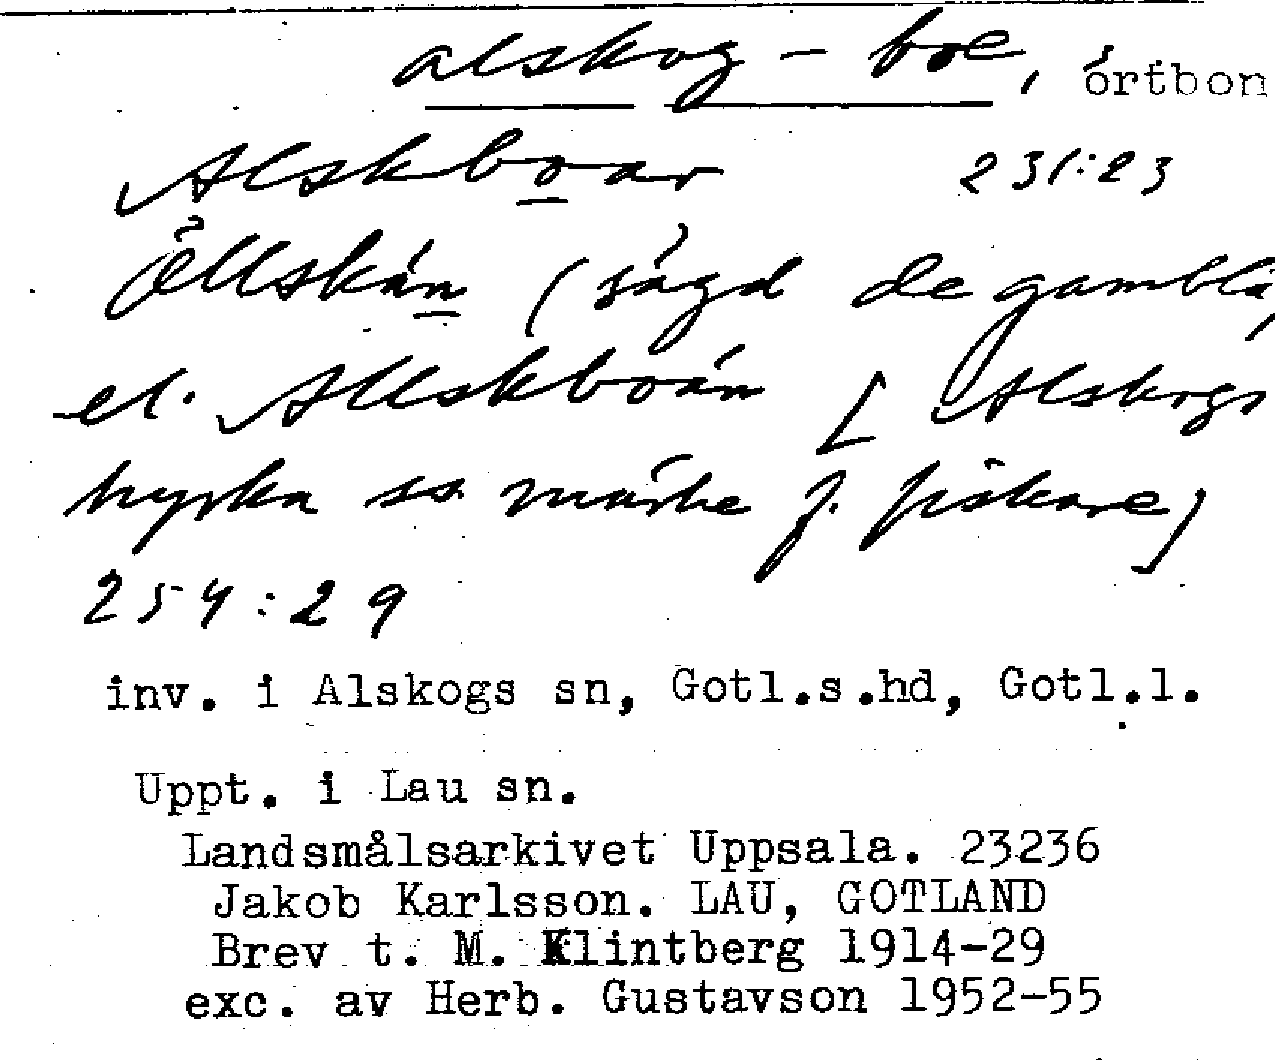 alskog-boe, ortbon
Alskboar 231:23
Ällskån (sågd de gamblå,
el. Allskboån [Alskogs
kyrka ss märke f. fiskare]
254:29
inv. i Alskogs sn, Gotl.s.hd, Gotl.l.
Uppt. i Lau sn.
Landsmålsarkivet Uppsala. 23236
Jakob Karlsson. LAU, GOTLAND
Brev t. M. Klintberg 1914-29
exc. av Herb. Gustavson 1952-55